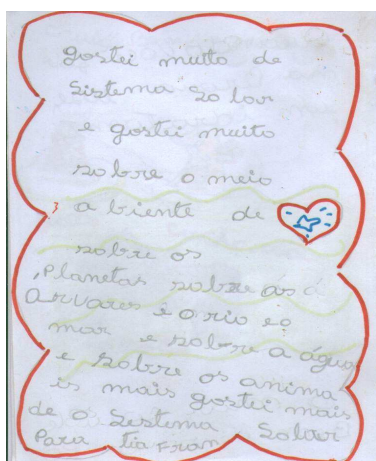 gostei muito de
Sistema So lar
e gostei muito
sobre o meio
a biente de
sobre os
Planetas sobre ás
arvores e o rio e o
mar e sobre a água
e sobre os anima
is mais gostei mais
de o Sestema Solar
Para tia Fran